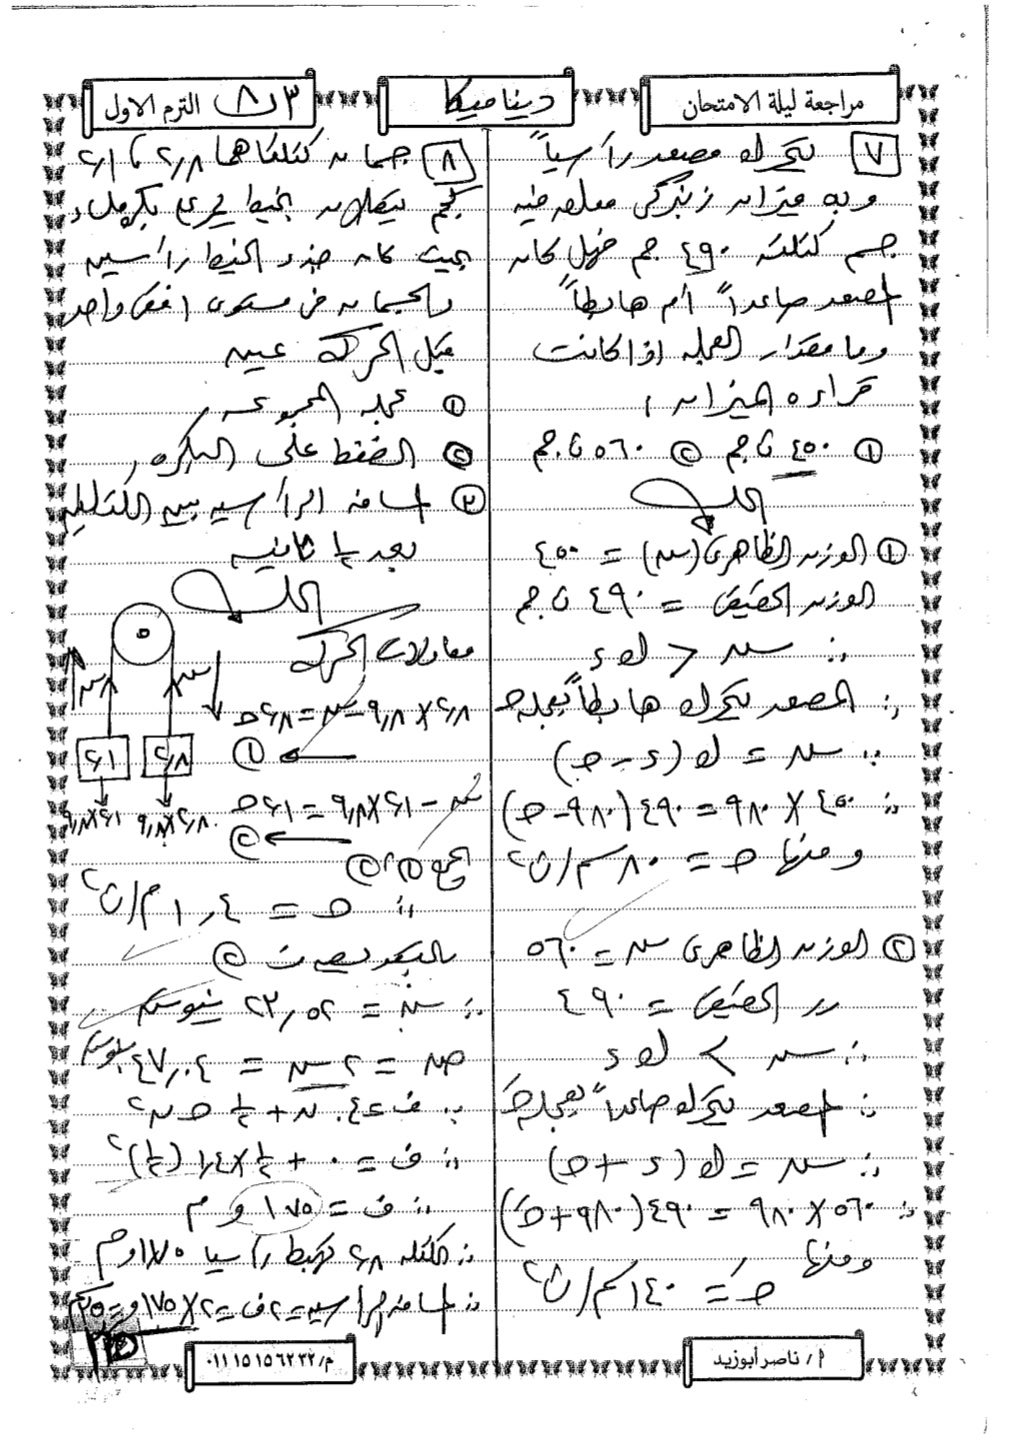 مراجعة ليلة الامتحان
ديناميكا
٣ث الترم الاول
٧ يتحرك مصعد رأسياً
وبه ميزان زنبركى معلق فيه
جسم كتلته ٤٩٠ جم فهل كان
المصعد صاعداً أم هابطاً
وما مقدار العجله اذا كانت
قراءه الميزان ،
① ٤٥٠ ث جم ② ٥٦٠ ث جم
الحل
① الوزن الظاهرى (سه) = ٤٥٠
الوزن الحقيقى = ٤٩٠ ث جم
∴ سه < ك ء
∴ المصعد يتحرك هابطاً بعجله حـ
∴ سه = ك (ء - حـ)
∴ ٤٥٠ × ٩٨٠ = ٤٩٠ (٩٨٠ - حـ)
ومنها حـ = ٨٠ سم/ث٢
② الوزن الظاهرى سه = ٥٦٠
〃 الحقيقى = ٤٩٠
∴ سه > ك ء
∴ المصعد يتحرك صاعداً بعجله حـَ
∴ سه = ك (ء + حـ)
∴ ٥٦٠ × ٩٨٠ = ٤٩٠ (٩٨٠ + حـَ)
ومنها
حـَ = ١٤٠ سم/ث٢
٨ جسمان كتلتاهما ٢,٨ ، ٢,١
كجم يتصلان بخيط يمر على بكره ملساء
بحيث كان جزء الخيط رأسيين
والجسمان فى مستوى افقى واحد
قبل الحركة عين
① عجله المجموعه ,
② الضغط على البكره ,
③ المسافه الرأسيه بين الكتلتين
بعد ½ ثانيه
الحل
معادلات الحركه
٢,٨ × ٩,٨ - سه = ٢,٨ حـ
← ①
سه - ٢,١ × ٩,٨ = ٢,١ حـ
← ②
بجمع ① ، ②
∴ حـ = ١,٤ م/ث٢
بالتعويض فى ②
∴ سه = ٢٣,٥٢ نيوتن
ضه = ٢ سه = ٤٧,٠٤ نيوتن
∵ ف = ع٠ ن + ½ حـ ن٢
∴ ف = ٠ + ½ × ١,٤ (½)٢
∴ ف = ١٧٥, م
∴ الكتله ٢,٨ تهبط رأسيا ١٧٥, م
∴ المسافه الرأسيه = ٢ ف = ٢ × ١٧٥, = ٣٥, م
سه سه
٢,١ ٢,٨
٢,١×٩,٨ ٢,٨×٩,٨
أ / ناصر أبوزيد
م/٠١١١٥١٥٦٢٣٢